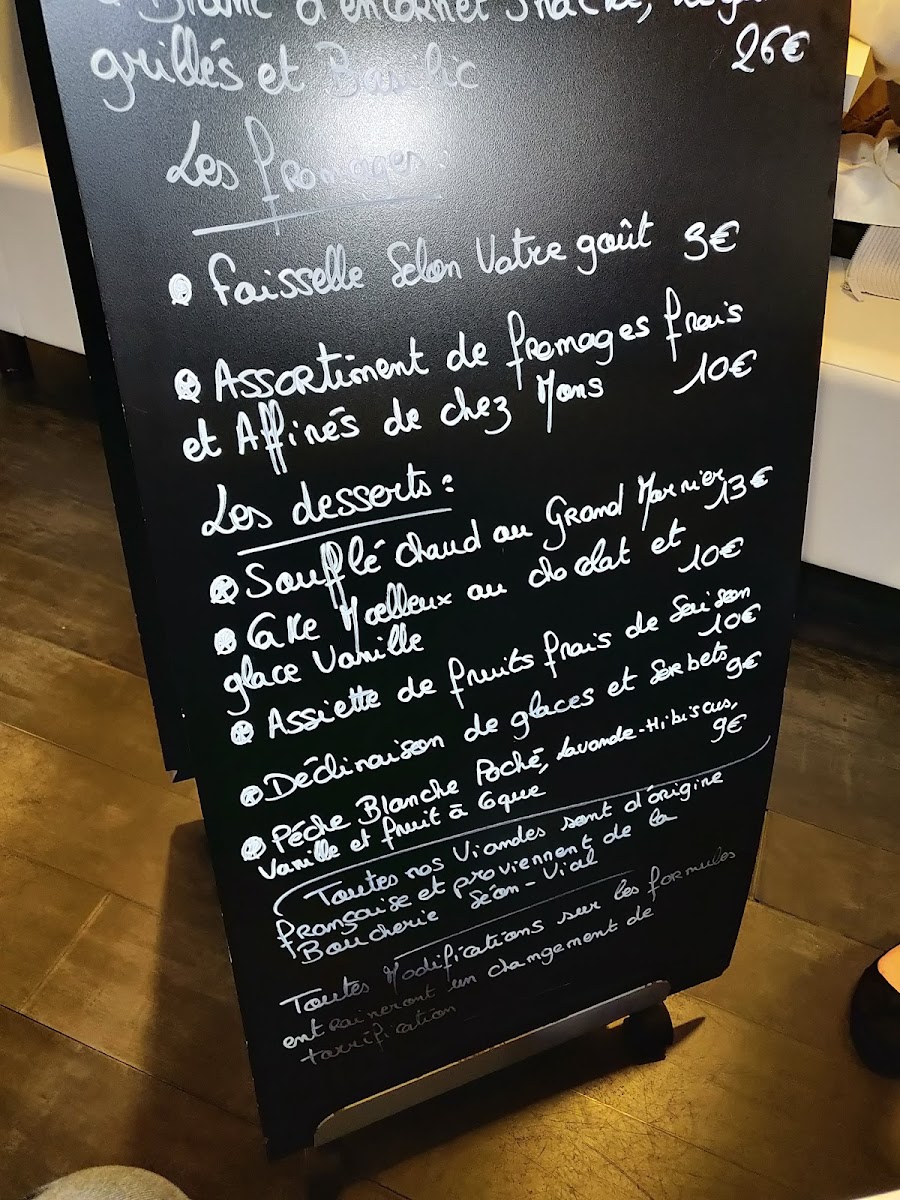 • Blanc d'encornet snacké,
grillés et Basilic 26€
Les fromages :
• Faisselle Selon Votre goût 9€
• Assortiment de fromages frais
et Affinés de chez Mons 10€
Les desserts :
• Soufflé chaud au Grand Marnier 13€
• Cake Moelleux au chocolat et
glace Vanille 10€
• Assiette de fruits frais de Saison
10€
• Déclinaison de glaces et sorbets 9€
• Pêche Blanche Poché, lavande-Hibiscus,
Vanille et fruit à Coque 9€
Toutes nos Viandes sont d'origine
française et proviennent de la
Boucherie Séon-Vial
Toutes Modifications sur les formules
entraineront un changement de
tarrification